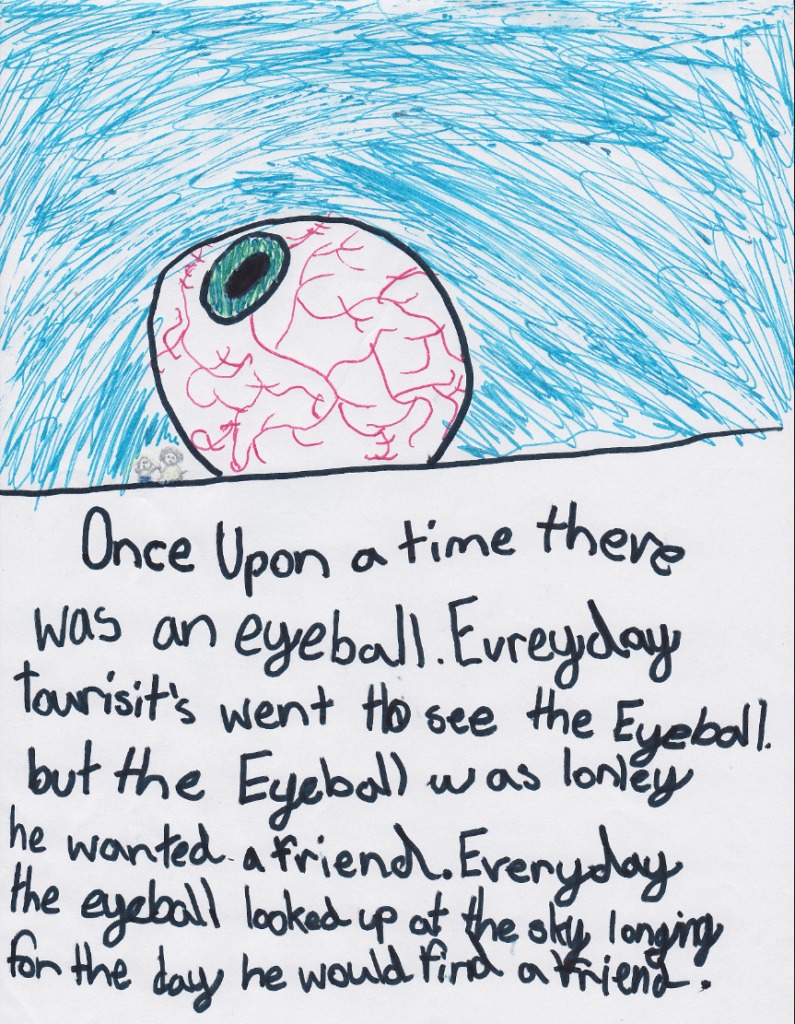 Once Upon a time there
was an eyeball. Evreyday
tourisit's went to see the Eyeball.
but the Eyeball was lonley
he wanted a friend. Everyday
the eyeball looked up at the sky longing
for the day he would find a friend.